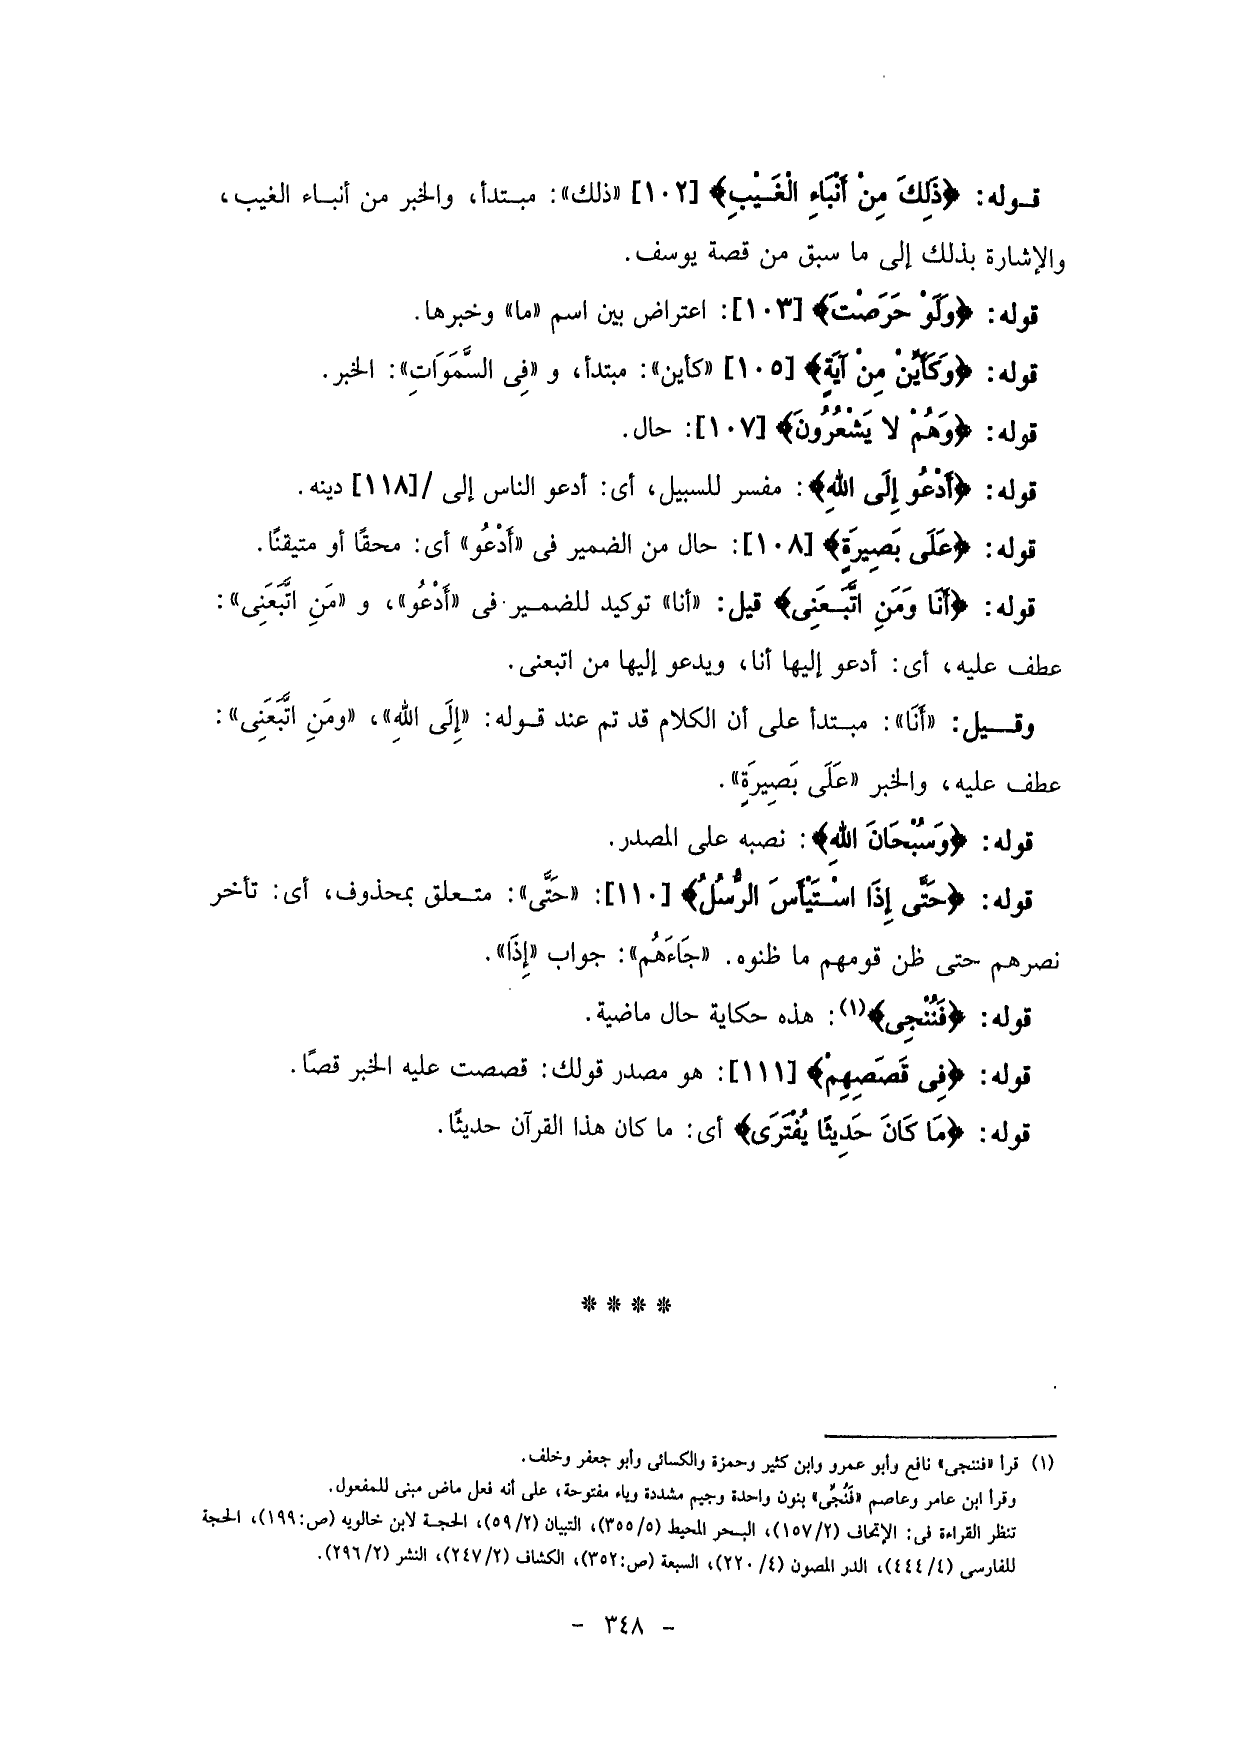 قوله: ﴿ذَلِكَ مِنْ أَنْبَاءِ الْغَيْبِ﴾ [١٠٢] «ذلك»: مبتدأ، والخبر من أنباء الغيب،
والإشارة بذلك إلى ما سبق من قصة يوسف.
قوله: ﴿وَلَوْ حَرَصْتَ﴾ [١٠٣]: اعتراض بين اسم «ما» وخبرها.
قوله: ﴿وَكَأَيِّنْ مِنْ آيَةٍ﴾ [١٠٥] «كأين»: مبتدأ، و «فِى السَّمَوَاتِ»: الخبر.
قوله: ﴿وَهُمْ لا يَشْعُرُونَ﴾ [١٠٧]: حال.
قوله: ﴿أَدْعُو إِلَى اللهِ﴾: مفسر للسبيل، أى: أدعو الناس إلى /[١١٨] دينه.
قوله: ﴿عَلَى بَصِيرَةٍ﴾ [١٠٨]: حال من الضمير فى «أَدْعُو» أى: محقًا أو متيقنًا.
قوله: ﴿أَنَا وَمَنِ اتَّبَعَنِى﴾ قيل: «أنا» توكيد للضمير فى «أَدْعُو»، و «مَنِ اتَّبَعَنِى»:
عطف عليه، أى: أدعو إليها أنا، ويدعو إليها من اتبعنى.
وقيل: «أَنَا»: مبتدأ على أن الكلام قد تم عند قوله: «إِلَى اللهِ»، «ومَنِ اتَّبَعَنِى»:
عطف عليه، والخبر «عَلَى بَصِيرَةٍ».
قوله: ﴿وَسُبْحَانَ اللهِ﴾: نصبه على المصدر.
قوله: ﴿حَتَّى إِذَا اسْتَيْأَسَ الرُّسُلُ﴾ [١١٠]: «حَتَّى»: متعلق بمحذوف، أى: تأخر
نصرهم حتى ظن قومهم ما ظنوه. «جَاءَهُم»: جواب «إِذَا».
قوله: ﴿فَنُنْجِى﴾(١): هذه حكاية حال ماضية.
قوله: ﴿فِى قَصَصِهِمْ﴾ [١١١]: هو مصدر قولك: قصصت عليه الخبر قصًا.
قوله: ﴿مَا كَانَ حَدِيثًا يُفْتَرَى﴾ أى: ما كان هذا القرآن حديثًا.
* * * *
(١) قرأ «فننجى» نافع وأبو عمرو وابن كثير وحمزة والكسائى وأبو جعفر وخلف.
وقرأ ابن عامر وعاصم «فَنُجِّى» بنون واحدة وجيم مشددة وياء مفتوحة، على أنه فعل ماض مبنى للمفعول.
تنظر القراءة فى: الإتحاف (١٥٧/٢)، البحر المحيط (٣٥٥/٥)، التبيان (٥٩/٢)، الحجة لابن خالويه (ص:١٩٩)، الحجة
للفارسى (٤٤٤/٤)، الدر المصون (٢٢٠/٤)، السبعة (ص:٣٥٢)، الكشاف (٢٤٧/٢)، النشر (٢٩٦/٢).
- ٣٤٨ -